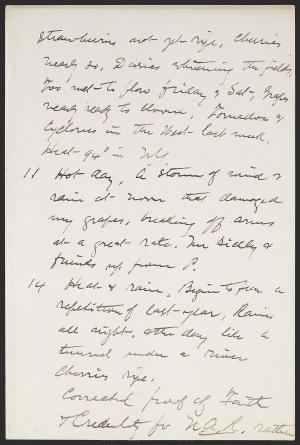 strawberries not yet ripe, cherries
nearly so, Daisies whitening the fields,
Too wet to plow friday & Sat. Grapes
nearly ready to bloom, Tornadoes &
Cyclones in the West last week.
Heat 94° in N.Y.
11 Hot day, A storm of wind &
rain at noon that damaged
my grapes, breaking off arms
at a great rate. Mr &
friends up from P.
14 Heat & rain, Begin to fear a
repetition of last year, Rains
all night, & the day like a
tunnel under a river
Cherries ripe.
Corrected proof of Faith
& Credulity for N.A.R. rather